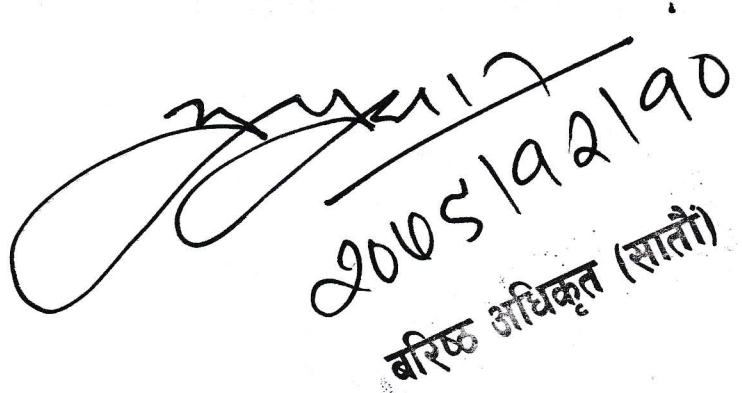 २०७८।१२।१०
बरिष्ठ अधिकृत (सातौं)